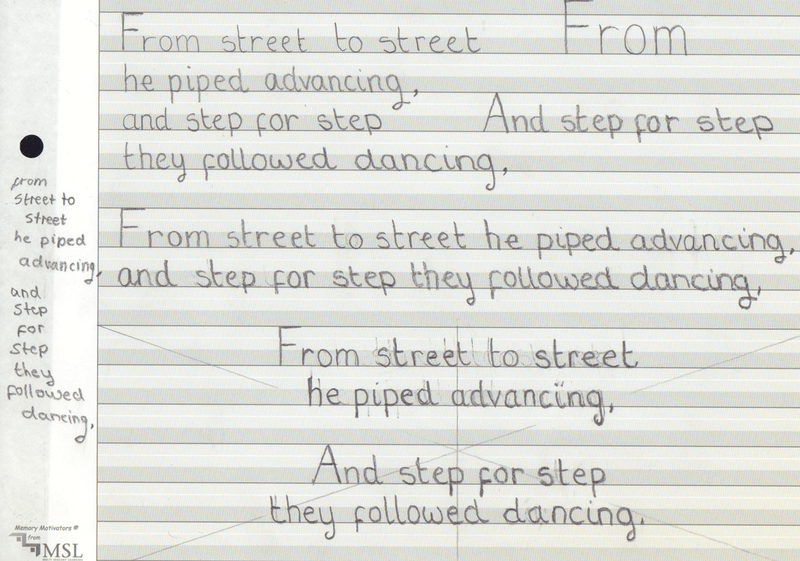 From street to street
From
he piped advancing,
and step for step
And step for step
they followed dancing,
From street to street he piped advancing,
and step for step they followed dancing,
From street to street
he piped advancing,
And step for step
they followed dancing.
from
street to
street
he piped
advancing,
and
step
for
step
they
followed
dancing,
Memory Motivators ®
from
MSL